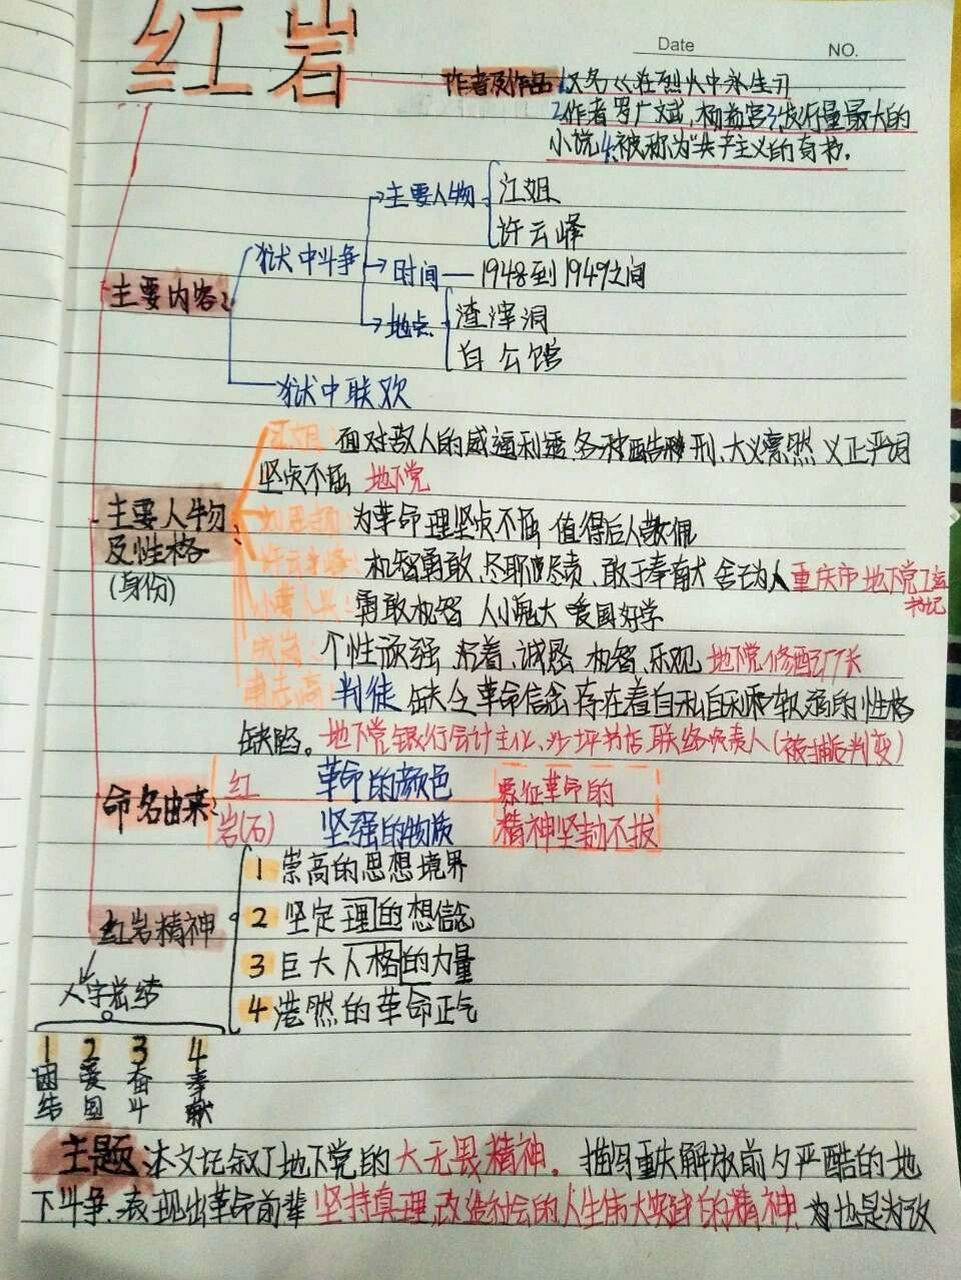 红岩
Date NO.
作者及作品 1.又名《在烈火中永生》
2.作者罗广斌,杨益言3.发行量最大的
小说4.被称为"共产主义的奇书.
主要人物 江姐
许云峰
狱中斗争
时间—1948到1949之间
主要内容
地点 渣滓洞
白公馆
狱中联欢
江姐:面对敌人的威逼利诱.各种酷刑.大义凛然 义正严词
坚贞不屈 地下党
主要人物
及性格
(身份)
刘思扬:为革命理坚贞不屈 值得后人敬佩
许云峰:机智勇敢、尽职尽责、敢于奉献 舍己为人 重庆市地下党工运
书记
小萝卜头:勇敢机智 人小鬼大 爱国好学
成岗:个性顽强 沉着、诚恳 机智、乐观 地下党修配厂厂长
甫志高:判徒 缺乏革命信念 存在着自私自利和软弱的性格
缺陷。地下党银行会计主任、沙坪书店联络负责人(被捕后判变)
命名由来 红 革命的颜色
岩(石) 坚强的物质
象征革命的
精神坚韧不拔
红岩精神
1 崇高的思想境界
2 坚定理的想信念
3 巨大人格的力量
4 浩然的革命正气
八字总结
1 团结
2 爱国
3 奋斗
4 奉献
主题 本文记叙了地下党的大无畏精神.描写重庆解放前夕严酷的地
下斗争.表现出革命前辈坚持真理,改造社会的人生伟大实践的精神.为也是为改